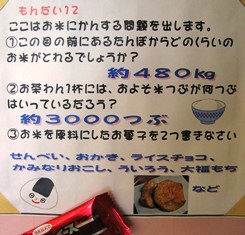 もんだい12
ここはお米にかんする問題を出します。
①この目の前にあるたんぼからどのくらいの
お米がとれるでしょうか?
約480kg
②お茶わん1杯には、およそ米つぶが何つぶ
はいっているだろう?
約3000つぶ
③お米を原料にしたお菓子を2つ書きなさい
せんべい、おかき、ライスチョコ、
かみなりおこし、ういろう、大福もち
など